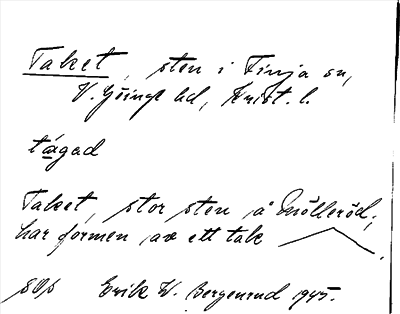 Taket, sten i Finja sn,
V. Göinge hd, Krist. l.
tágad
Taket, stor sten å Mölleröd;
har formen av ett tak
Erik W. Bergenrud 1945.